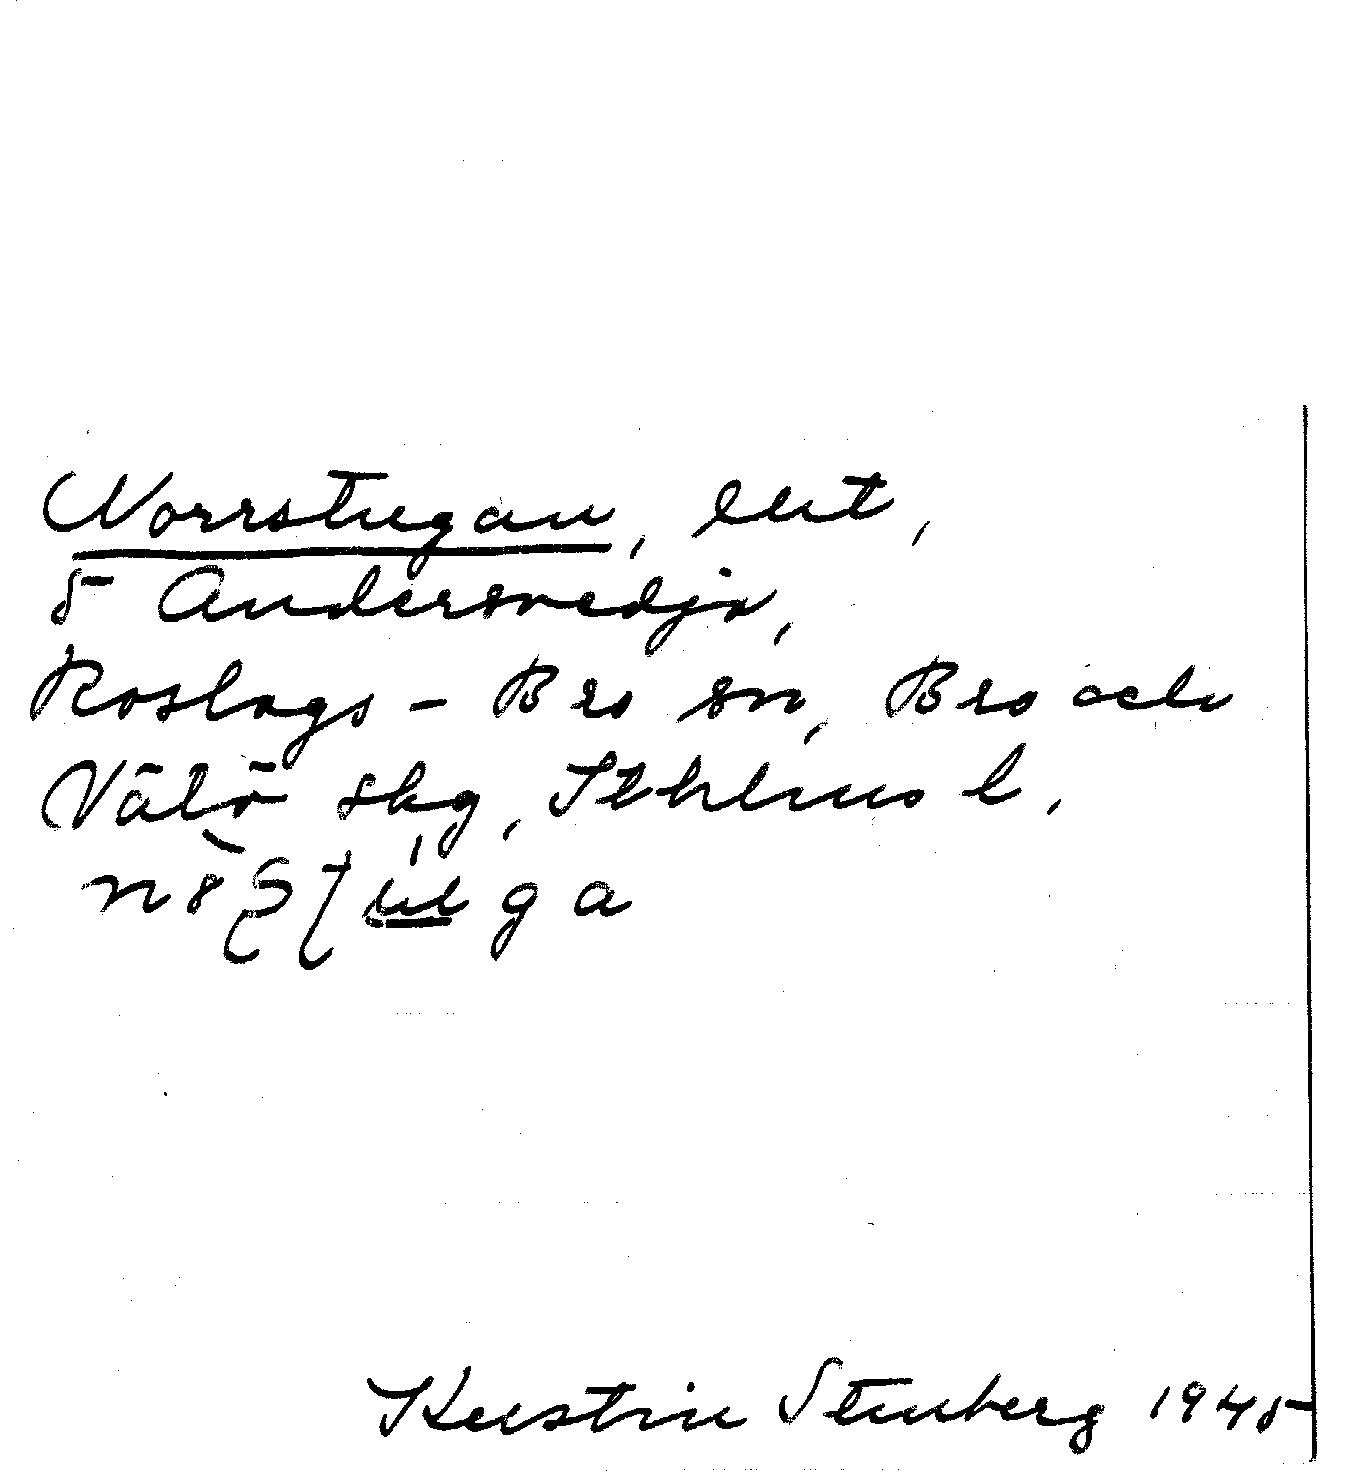 Norrstugan, lht,
5 Andersvedja,
Roslags-Bro sn, Bro och
Vätö skg, Sthlms l.
Kerstin Stenberg 1945